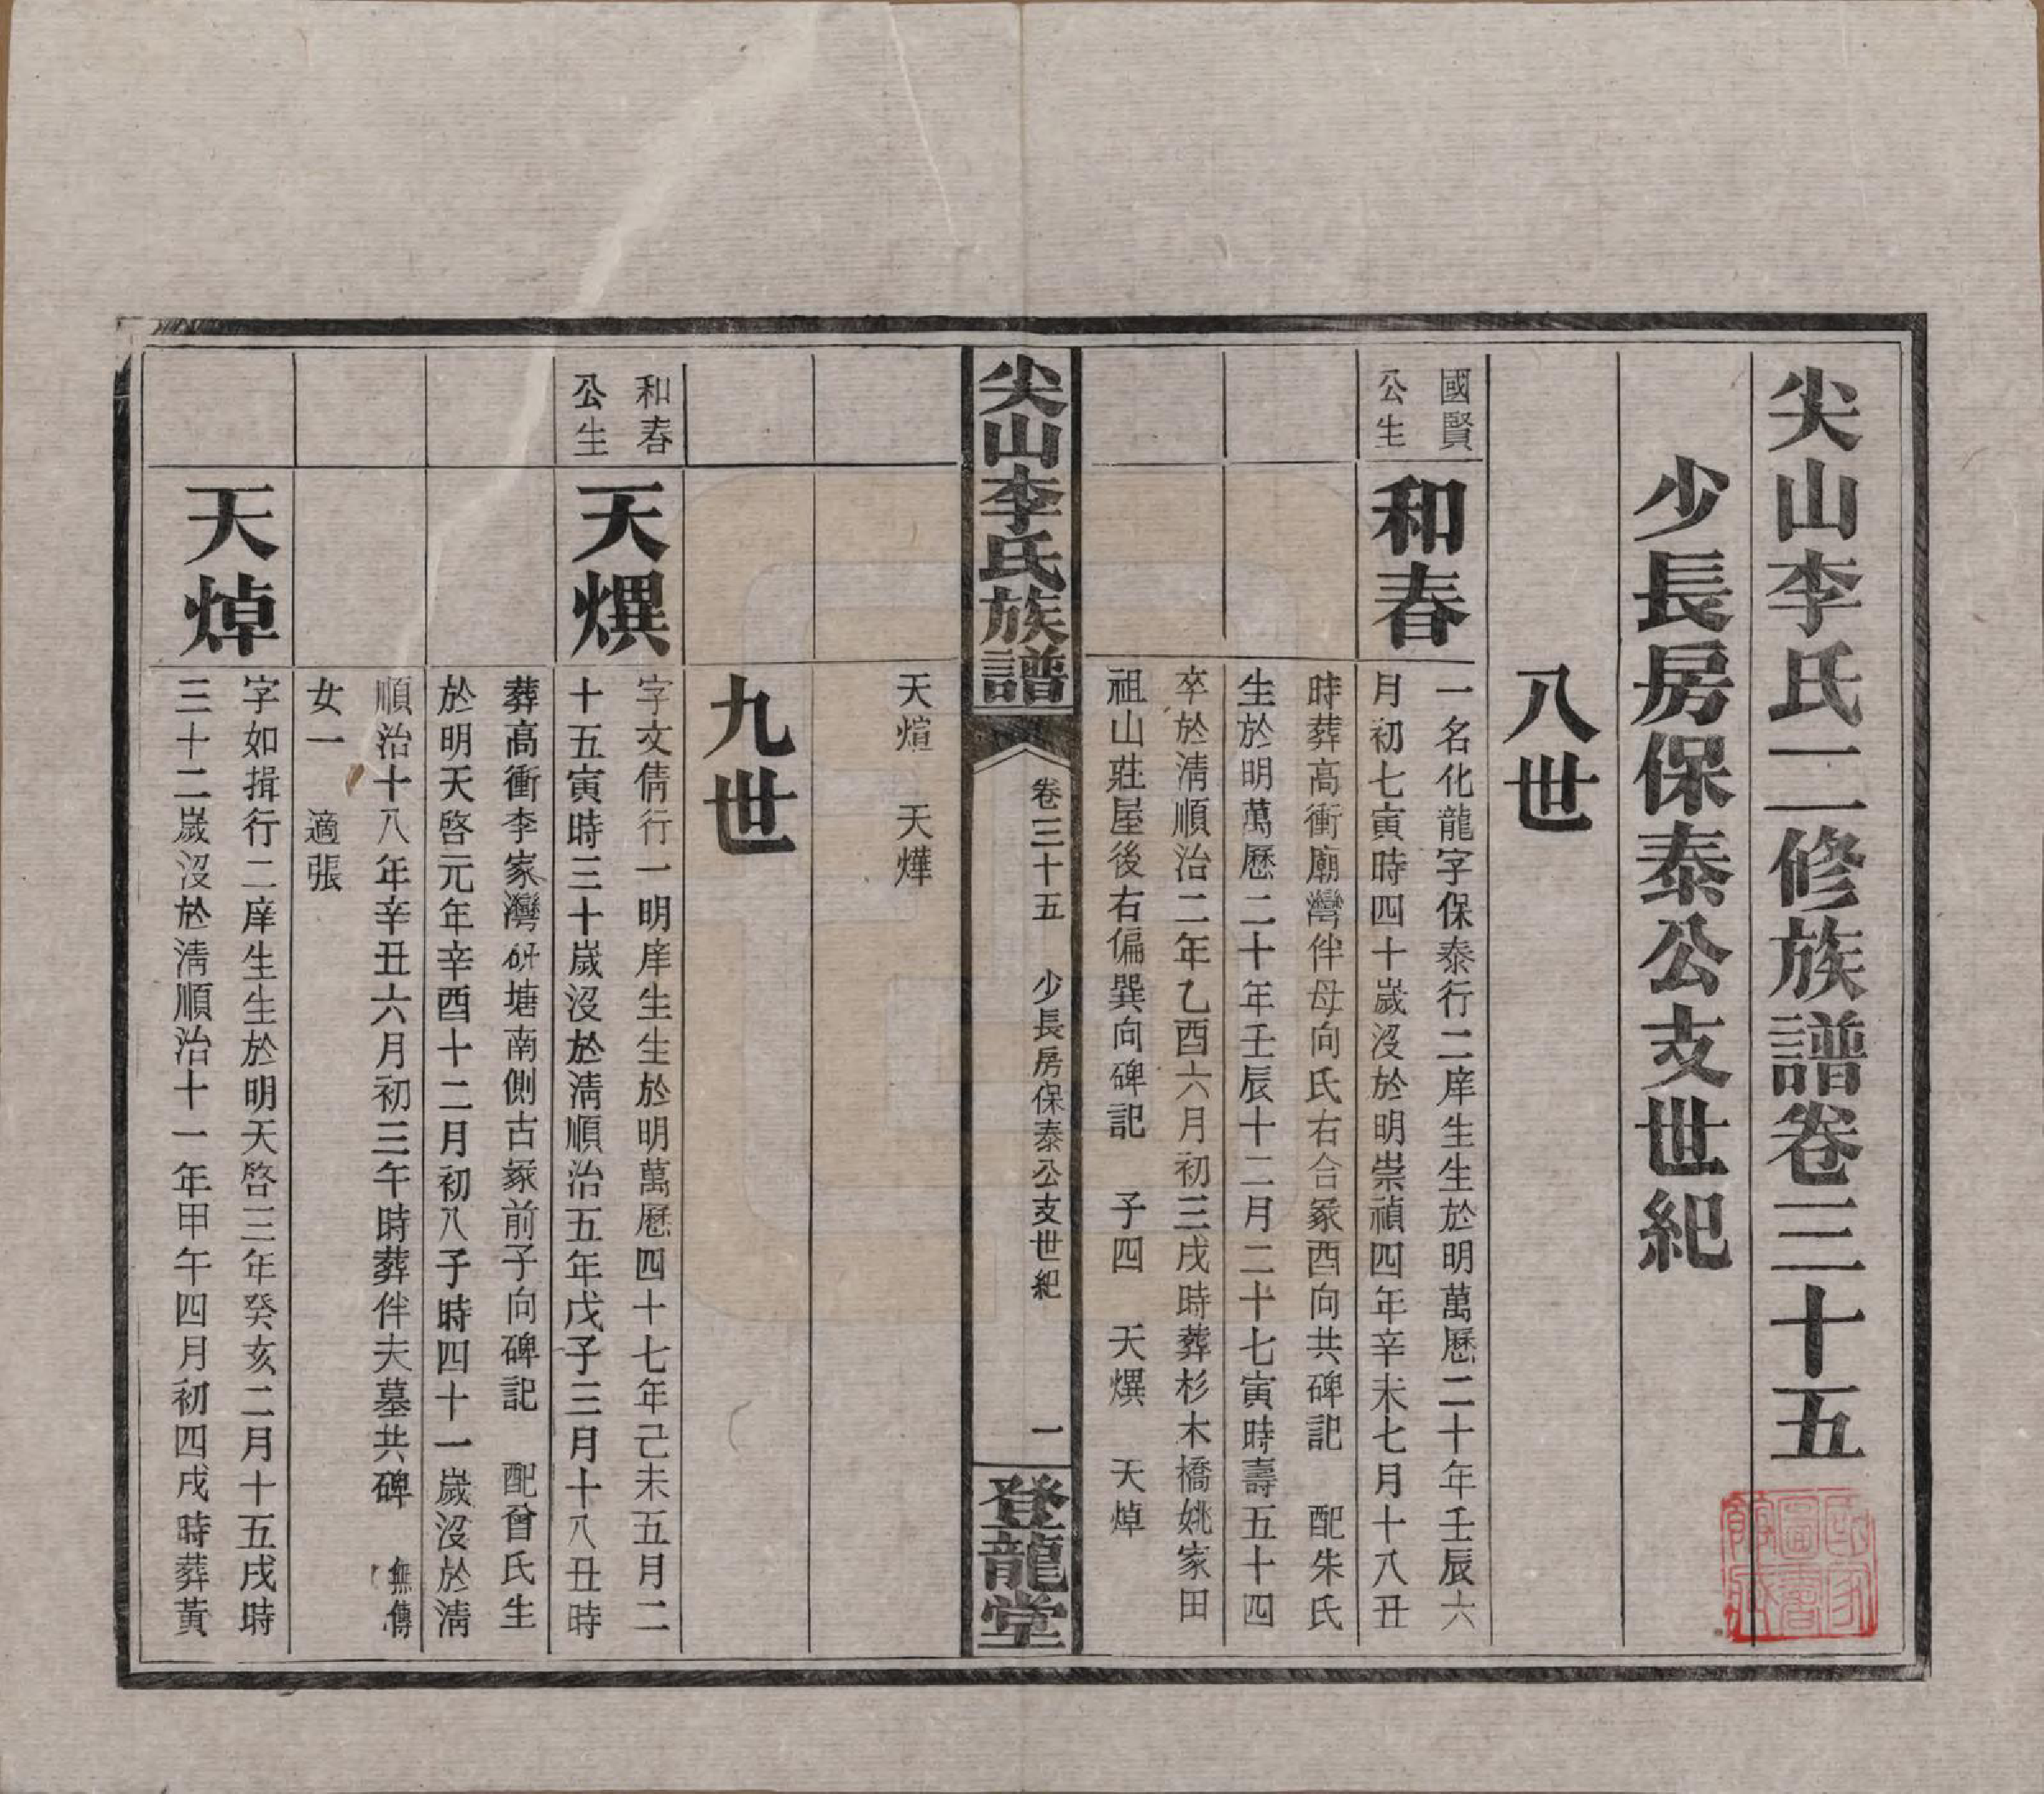 尖山李氏二修族譜卷三十五
少長房保泰公支世紀
八世
國賢
公生
和春
一名化龍字保泰行二庠生生於明萬曆二十年壬辰六
月初七寅時四十歲沒於明崇禎四年辛未七月十八丑
時葬高衝廟灣伴母向氏右合冢酉向共碑記 配朱氏
生於明萬曆二十年壬辰十二月二十七寅時壽五十四
卒於清順治二年乙酉六月初三戌時葬杉木橋姚家田
祖山莊屋後右偏巽向碑記 子四 天熼 天焯
尖山李氏族譜
卷三十五 少長房保泰公支世紀 一
登龍堂
天煊 天燁
九世
和春
公生
天熼
字文倩行一明庠生生於明萬曆四十七年己未五月二
十五寅時三十歲沒於清順治五年戊子三月十八丑時
葬高衝李家灣研塘南側古冢前子向碑記 配曾氏生
於明天啓元年辛酉十二月初八子時四十一歲沒於清
順治十八年辛丑六月初三午時葬伴夫墓共碑 無傳
女一 適張
天焯
字如揖行二庠生生於明天啓三年癸亥二月十五戌時
三十二歲沒於清順治十一年甲午四月初四戌時葬黃